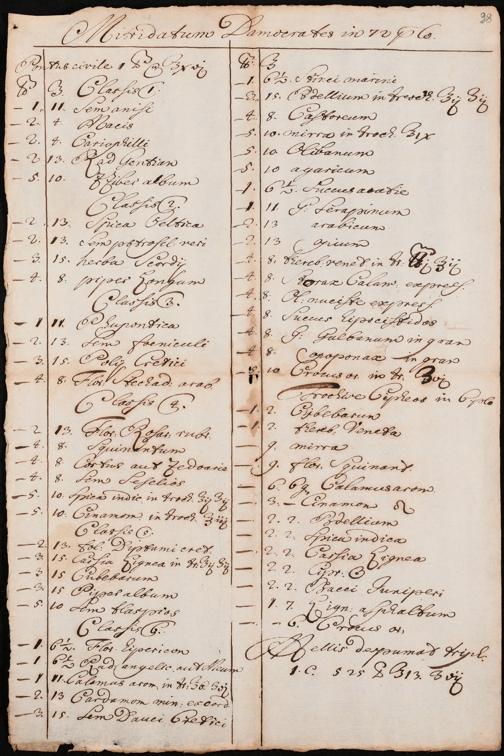 38
Mitridatum Damocrates in 72 plo.
Pontus civile 1
℔ ℥ Classis 1.
- 1. 11. Sem anisi
- 2. 4 Macis
- 2. 4 Cariophilli
- 2. 13. Rad gentian
- 5. 10. Zziber album
Classis 2.
- 2. 13. Spica Celtica
- 2. 13. Sem petrosel
- 3. 15. herba Scordij
- 4. 8. piper Longum
Classis 3.
- 1 11. Rhapontica
- 2. 13. Sem foeniculi
- 3. 15. Polij Cretici
- 4. 8. Flos Stechad: arab
Classis 4.
- 2. 13. Flos Rosar. rubr.
- 4. 8. Squinantum
- 4. 8 Costus aut Zedoaria
- 4. 8. Sem Seselios
- 5. 10. Spica indic in troch ʒij
- 5. 10. Cinamom in troch.
Classis 5.
- 2. 13. fol. Diptami cret.
- 3. 15 Cassia Lignea in tr.
- 3 15 Cubebarum
- 3 15 Piper album
- 5. 10 Sem thaspios
Classis 6.
- 1. 6½. Flos Hipericon
- 1. 6½ Rad angelic. aut Meum
- 1 11. Calamus arom. in tr.
- 2. 13 Cardamom min. excort
- 3. 15. Sem Dauci Cretici
℔ ℥
- 1. 6½. Stinci marini
- 3. 15. Bdellium in troch. ʒij
- 4. 8 Castoreum
- 5. 10. mirra in troch. ʒix
- 5. 10. Olibanum
- 5 10 agaricum
- 1. 6½. Succus acatie
- 1. 11 G. Serapinum
- 2. 13 arabicum
- 2. 13 opium
- 4 8 thereb. venet in tr.
- 4. 8. Storax Calam. express.
- 4. 8. Ol. nuciste express
- 4. 8 Succus hipocistidos
- 4. 8. G: Galbanum in gran
- 4. 8. Opoponax in gran
10 Crocus or. in tr. ʒvij
Trochisc Cipheos in 6 plo
- 1 2. Cibebarum
- 1 2 thereb. Veneta
- 9. mirra
- 9. flos. Squinant
- 6. 6. Calamus arom
- 3. - Cinamom
- 2. 2. Bdellium
- 2. 2. Spica indica
- 2. 2. Cassia Lignea
- 2. 2. Cipr.
- 2. 2. Bacci Juniperi
1. 7. Lign. asphaltum
- 6. Crocus or.
Mellis despumat tripl.
1. C. 525 ℔ ℥13. ʒvij